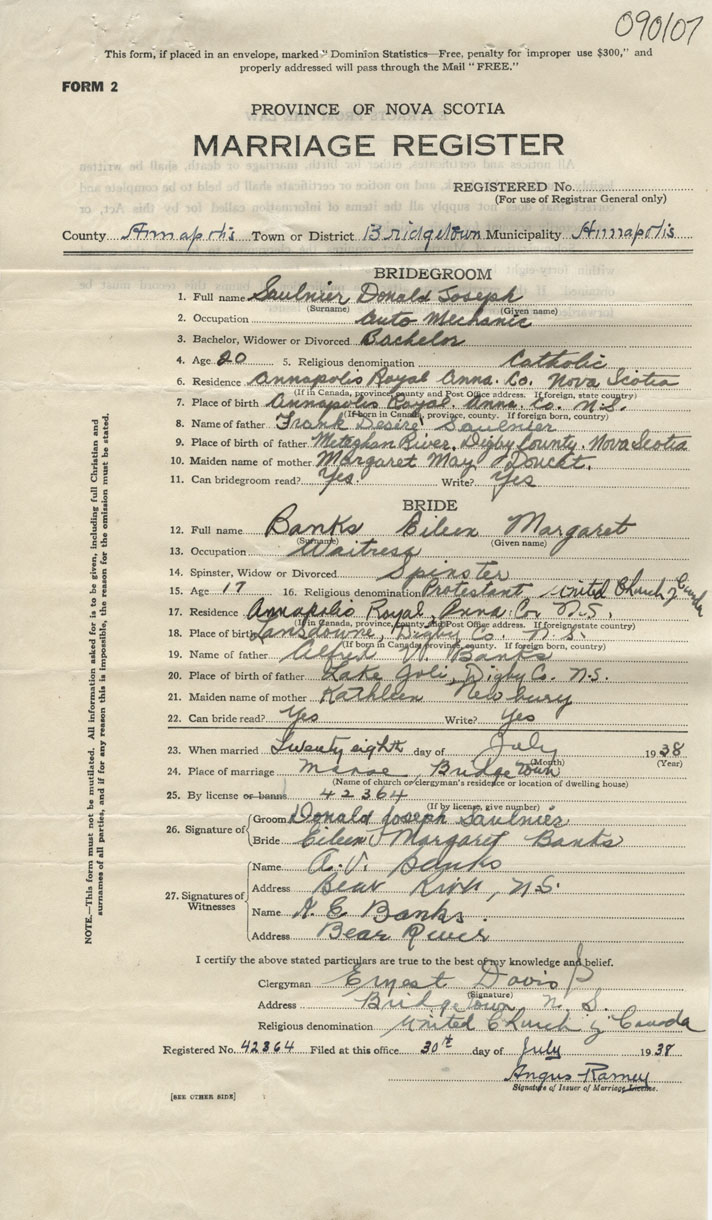 090107
This form, if placed in an envelope, marked "Dominion Statistics—Free, penalty for improper use $300," and
properly addressed will pass through the Mail "FREE."
FORM 2
PROVINCE OF NOVA SCOTIA
MARRIAGE REGISTER
REGISTERED No.
(For use of Registrar General only)
County Annapolis Town or District Bridgetown Municipality Annapolis
BRIDEGROOM
1. Full name Saulnier Donald Joseph
(Surname) (Given name)
2. Occupation Auto Mechanic
3. Bachelor, Widower or Divorced Bachelor
4. Age 20 5. Religious denomination Catholic
6. Residence Annapolis Royal Anna. Co. Nova Scotia
(If in Canada, province, county and Post Office address. If foreign, state country)
7. Place of birth Annapolis Royal. Anna. Co. N.S.
(If born in Canada, province, county. If foreign born, country)
8. Name of father Frank Desire Saulnier
9. Place of birth of father Meteghan River, Digby County. Nova Scotia
10. Maiden name of mother Margaret May
11. Can bridegroom read? Yes. Write? Yes
BRIDE
12. Full name Banks Eileen Margaret
(Surname) (Given name)
13. Occupation Waitress
14. Spinster, Widow or Divorced Spinster
15. Age 17 16. Religious denomination Protestant, United Church of Canada
17. Residence Annapolis Royal, Anna. Co. N.S.
(If in Canada, province, county and Post Office address. If foreign state country)
18. Place of birth Lansdowne, Digby Co. N.S.
(If born in Canada, province, county. If foreign born, country)
19. Name of father Alfred V. Banks
20. Place of birth of father Lake Joli, Digby Co. N.S.
21. Maiden name of mother Kathleen Newbury
22. Can bride read? Yes Write? Yes
23. When married Twenty eighth day of July 1938
(Month) (Year)
24. Place of marriage Manse, Bridgetown
(Name of church or clergyman's residence or location of dwelling house)
25. By license or banns 42364
(If by license, give number)
26. Signature of Groom Donald Joseph Saulnier
Bride Eileen Margaret Banks
27. Signatures of Witnesses
Name A. V. Banks
Address Bear River, N.S.
Name A. E. Banks.
Address Bear River
I certify the above stated particulars are true to the best of my knowledge and belief.
Clergyman Ernest Davis
(Signature)
Address Bridgetown N. S.
Religious denomination United Church of Canada
Registered No. 42364 Filed at this office 30th day of July 1938
Angus Ramey
Signature of Issuer of Marriage License.
[SEE OTHER SIDE]
NOTE.—This form must not be mutilated. All information asked for is to be given, including full Christian and
surnames of all parties, and if for any reason this is impossible, the reason for the omission must be stated.